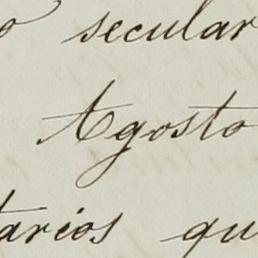 o secular
Agosto
tarios qu